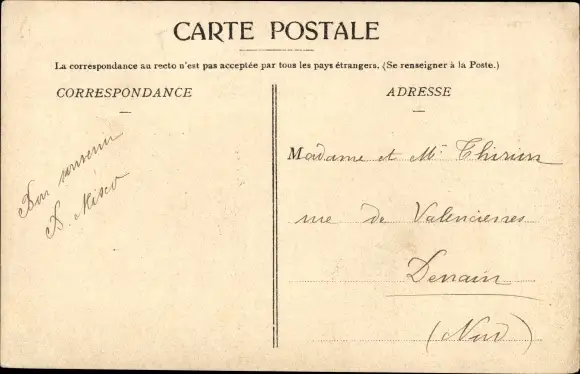 CARTE POSTALE
La correspondance au recto n'est pas acceptée par tous les pays étrangers. (Se renseigner à la Poste.)
CORRESPONDANCE
Bon souvenir
ADRESSE
Madame et Mr Thirion
rue de Valenciennes
Denain
(Nord)